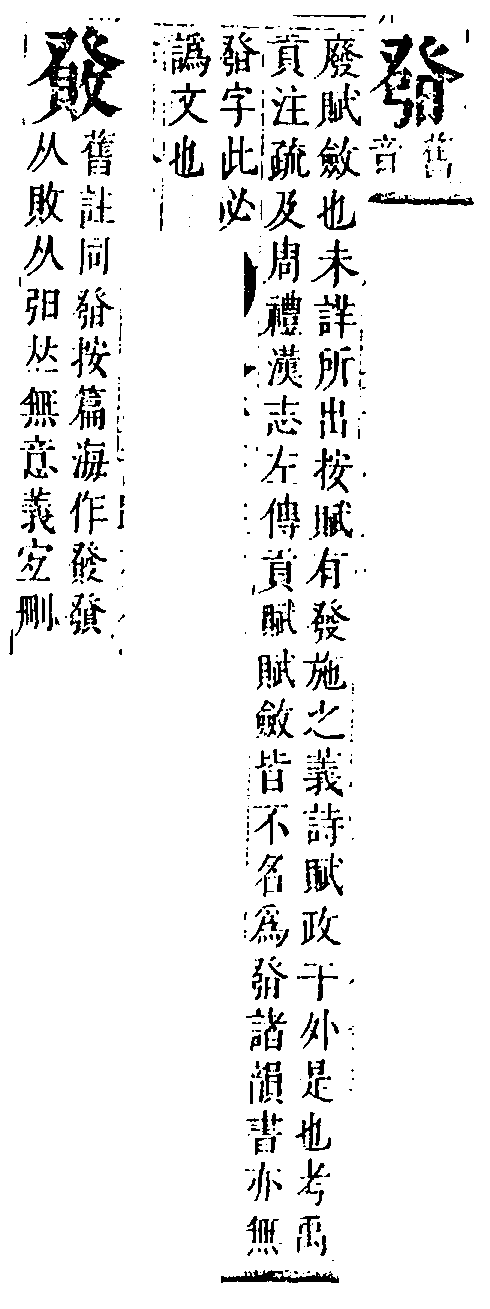 舊
音
廢賦斂也未詳所出按賦有發施之義詩賦政于外是也考禹
貢注疏及周禮漢志左傳貢賦賦斂皆不名爲諸韻書亦無
字此必
譌文也
舊註同發按篇海作
从敗从𠀤無意義宜刪